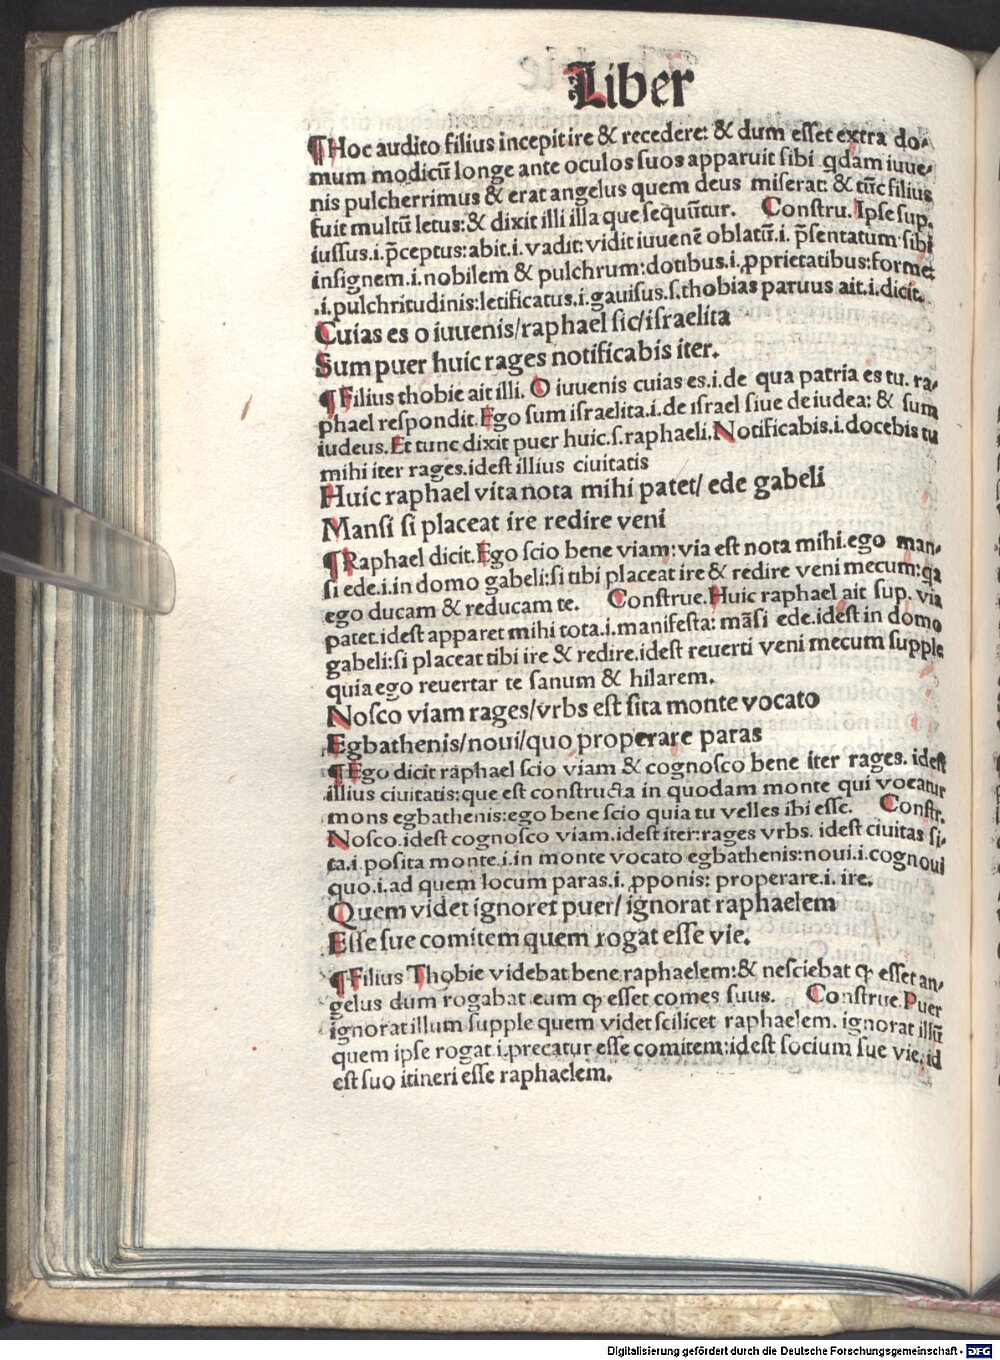 Liber
¶Hoc audito filius incepit ire & recedere: & dum esset extra do-
mum modicū longe ante oculos suos apparuit sibi qdam iuue-
nis pulcherrimus & erat angelus quem deus miserat: & tūc filius
fuit multū letus: & dixit illi illa que sequūtur. Constru. Ipse sup.
iussus.i.p̄ceptus: abit.i.vadit: vidit iuuenē oblatū.i.p̄sentatum sibi
insignem.i.nobilem & pulchrum: dotibus.i.ꝓprietatibus: forme:
.i.pulchritudinis: letificatus.i.gauisus.s.thobias paruus ait.i.dicit.
Cuias es o iuuenis/raphael sic/israelita
Sum puer huic rages notificabis iter.
¶Filius thobie ait illi. O iuuenis cuias es.i.de qua patria es tu. ra-
phael respondit. Ego sum israelita.i.de israel siue de iudea: & sum
iudeus. Et tunc dixit puer huic.s.raphaeli. Notificabis.i.docebis tu
mihi iter rages.idest illius ciuitatis
Huic raphael vita nota mihi patet/ ede gabeli
Mansi si placeat ire redire veni
¶Raphael dicit. Ego scio bene viam: via est nota mihi.ego man-
si ede.i.in domo gabeli: si tibi placeat ire & redire veni mecum: qa
ego ducam & reducam te. Construe. Huic raphael ait sup. via
patet.idest apparet mihi tota.i.manifesta: māsi ede.idest in domo
gabeli: si placeat tibi ire & redire.idest reuerti veni mecum supple
quia ego reuertar te sanum & hilarem.
Nosco viam rages/vrbs est sita monte vocato
Egbathenis/noui/quo properare paras
¶Ego dicit raphael scio viam & cognosco bene iter rages. idest
illius ciuitatis: que est constructa in quodam monte qui vocatur
mons egbathenis: ego bene scio quia tu velles ibi esse. Constr.
Nosco.idest cognosco viam.idest iter: rages vrbs. idest ciuitas si-
ta.i.posita monte.i.in monte vocato egbathenis: noui.i.cognoui
quo.i.ad quem locum paras.i.ꝓponis: properare.i.ire.
Quem videt ignoret puer/ ignorat raphaelem
Esse sue comitem quem rogat esse vie.
¶Filius Thobie videbat bene raphaelem: & nesciebat ꝙ esset an-
gelus dum rogabat eum ꝙ esset comes suus. Construe. Puer
ignorat illum supple quem videt scilicet raphaelem. ignorat illū
quem ipse rogat.i.precatur esse comitem: idest socium sue vie.id
est suo itineri esse raphaelem.
Digitalisierung gefördert durch die Deutsche Forschungsgemeinschaft - DFG